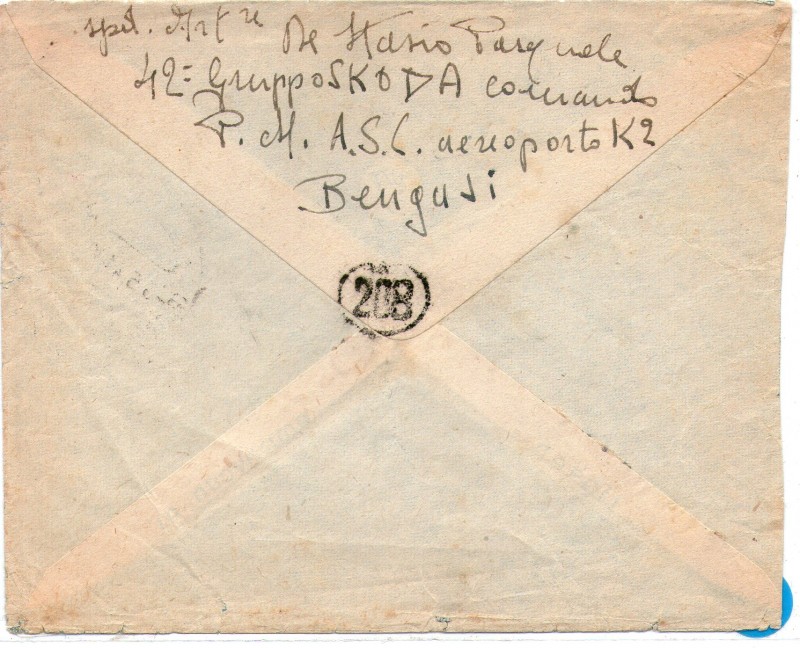 sped. Art.re De Stasio Pasquale
42= Gruppo SKODA comando
P. M. A.S.C. aereoporto K2
Bengasi
208